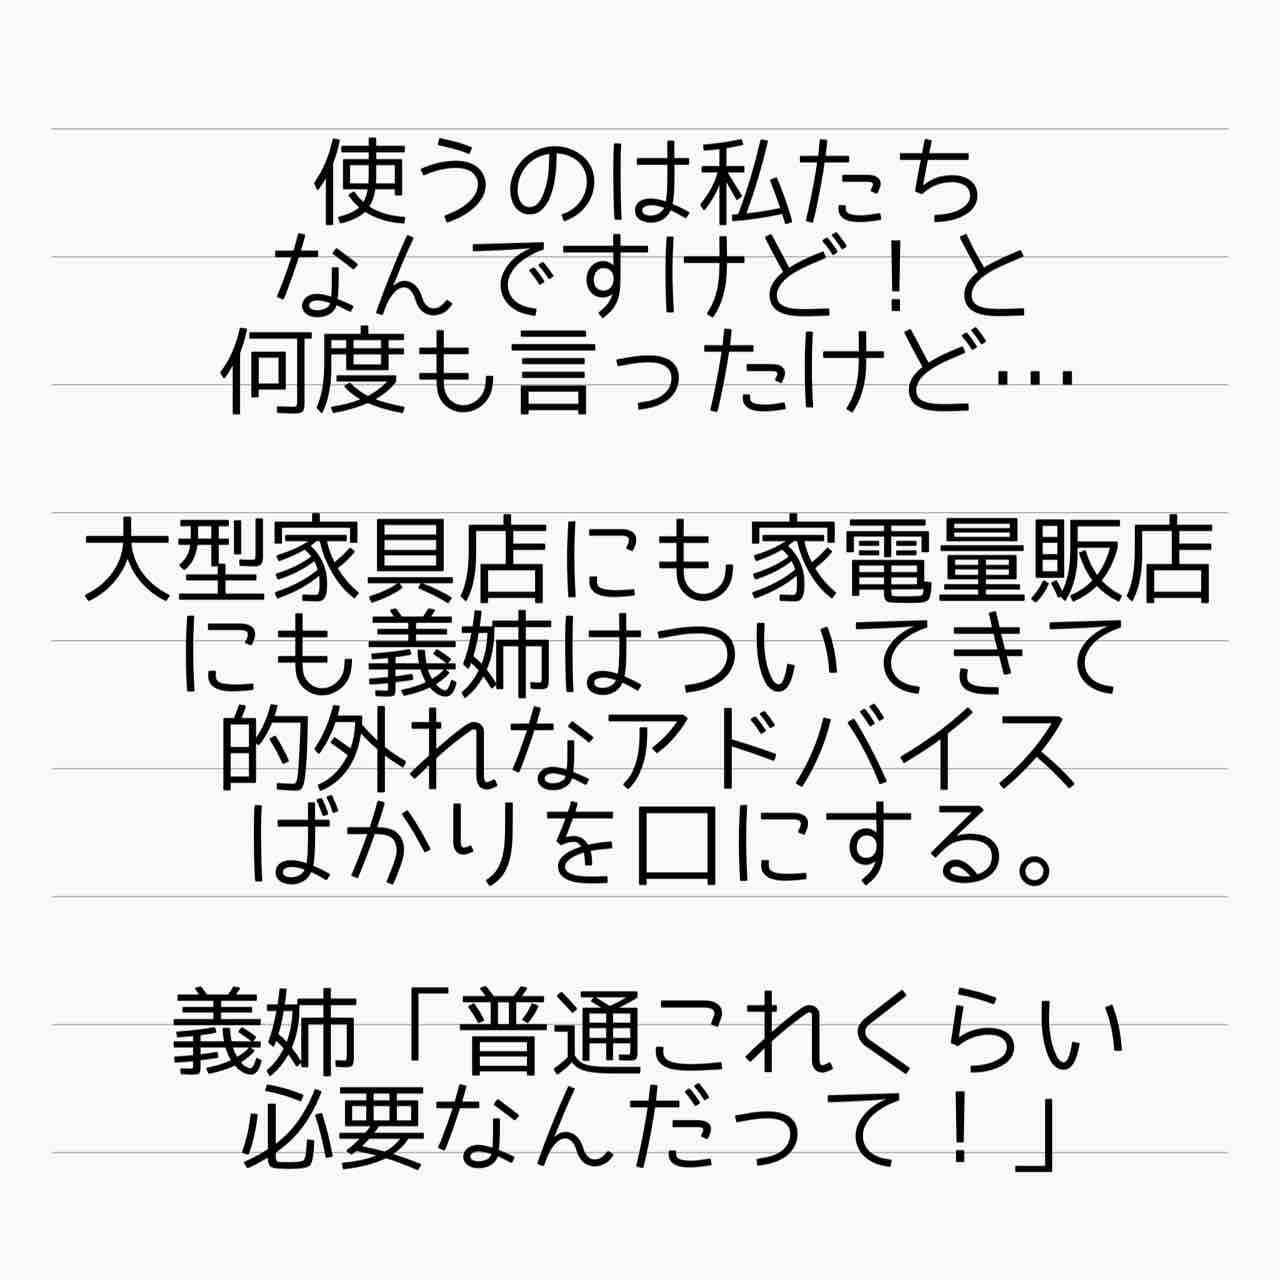 使うのは私たち
なんですけど！と
何度も言ったけど…
大型家具店にも家電量販店
にも義姉はついてきて
的外れなアドバイス
ばかりを口にする。
義姉「普通これくらい
必要なんだって！」